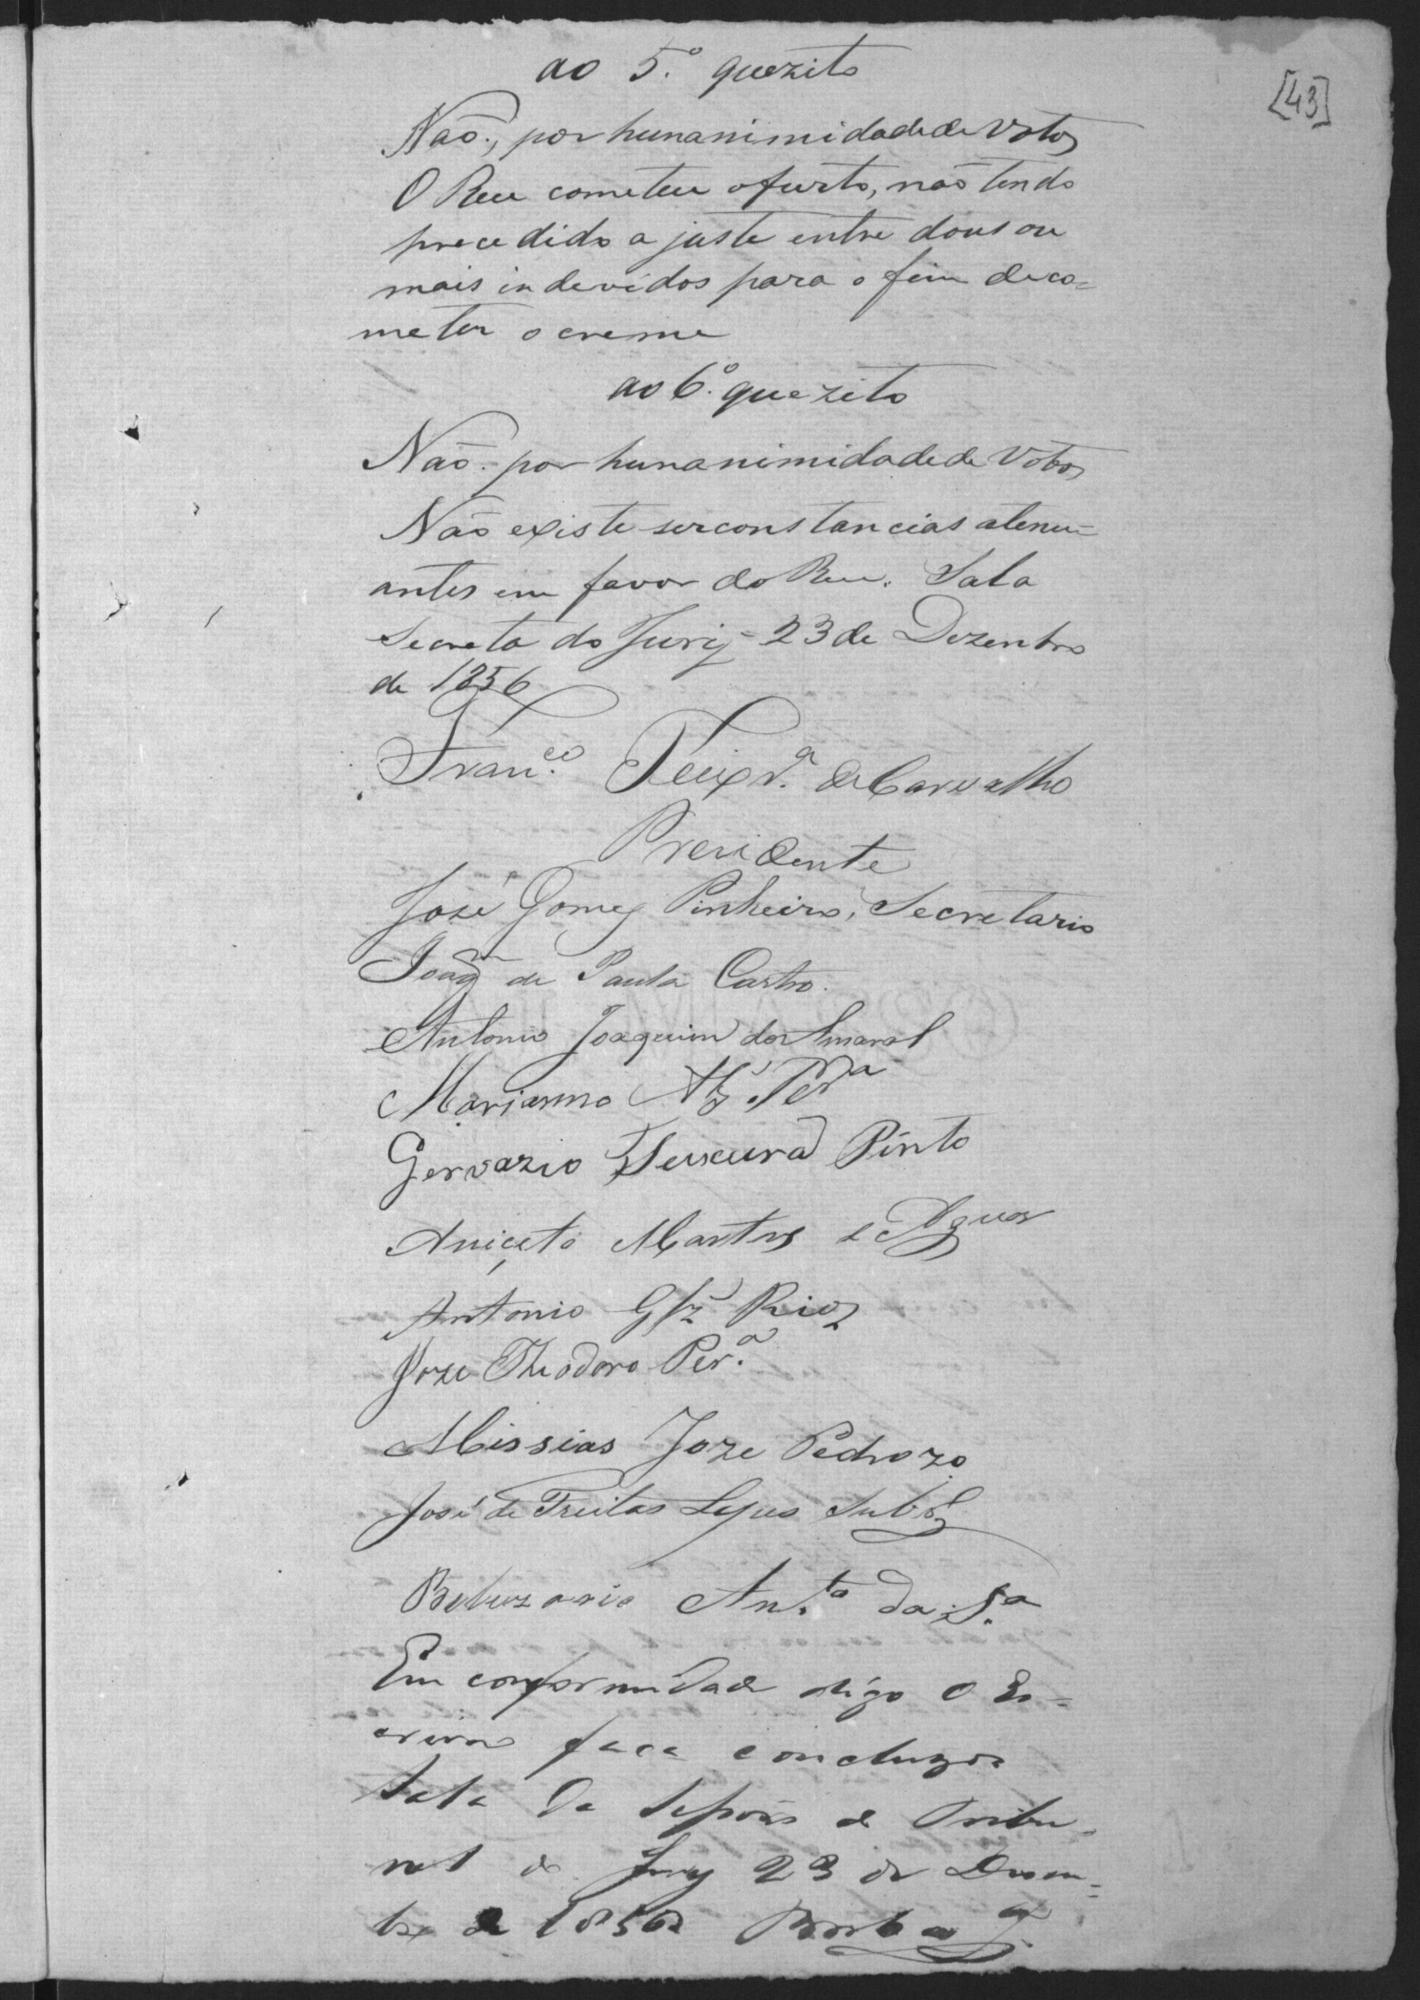 [43]
ao 5.º quezito
Não., por hunanimidade de Votos
O Reu cometeu o furto, não tendo
precedido a juste entre dous ou
mais indevidos para o fim de co=
meter o creme
ao 6.º quezito
Não. por hunanimidade de Votos
Não existe serconstancias atenu=
antes em favor do Reu. Sala
Secreta do Jury = 23 de Dezenbro
de 1856
Fran.co Teixr.a de Carvalho
Prezidente
José Gomes Pinheiro, Secretario
Joaqm de Paula Castro.
Antonio Joaquim do Amaral
Marianno Alz' Pera
Gervazio Teixeira Pinto
Aniceto Martins e Aguiar
Antonio Glz' Rios
Joze Theodoro Per.a
Missias Joze Pedrozo
José de Freitas Lopes
Beluzario Ant.o da S.a
Em conformidade digo O Es=
crivão faça concluzos
Sala da Sessões do Tribu=
nal do Jury 23 de Dezem=
bro de 1856